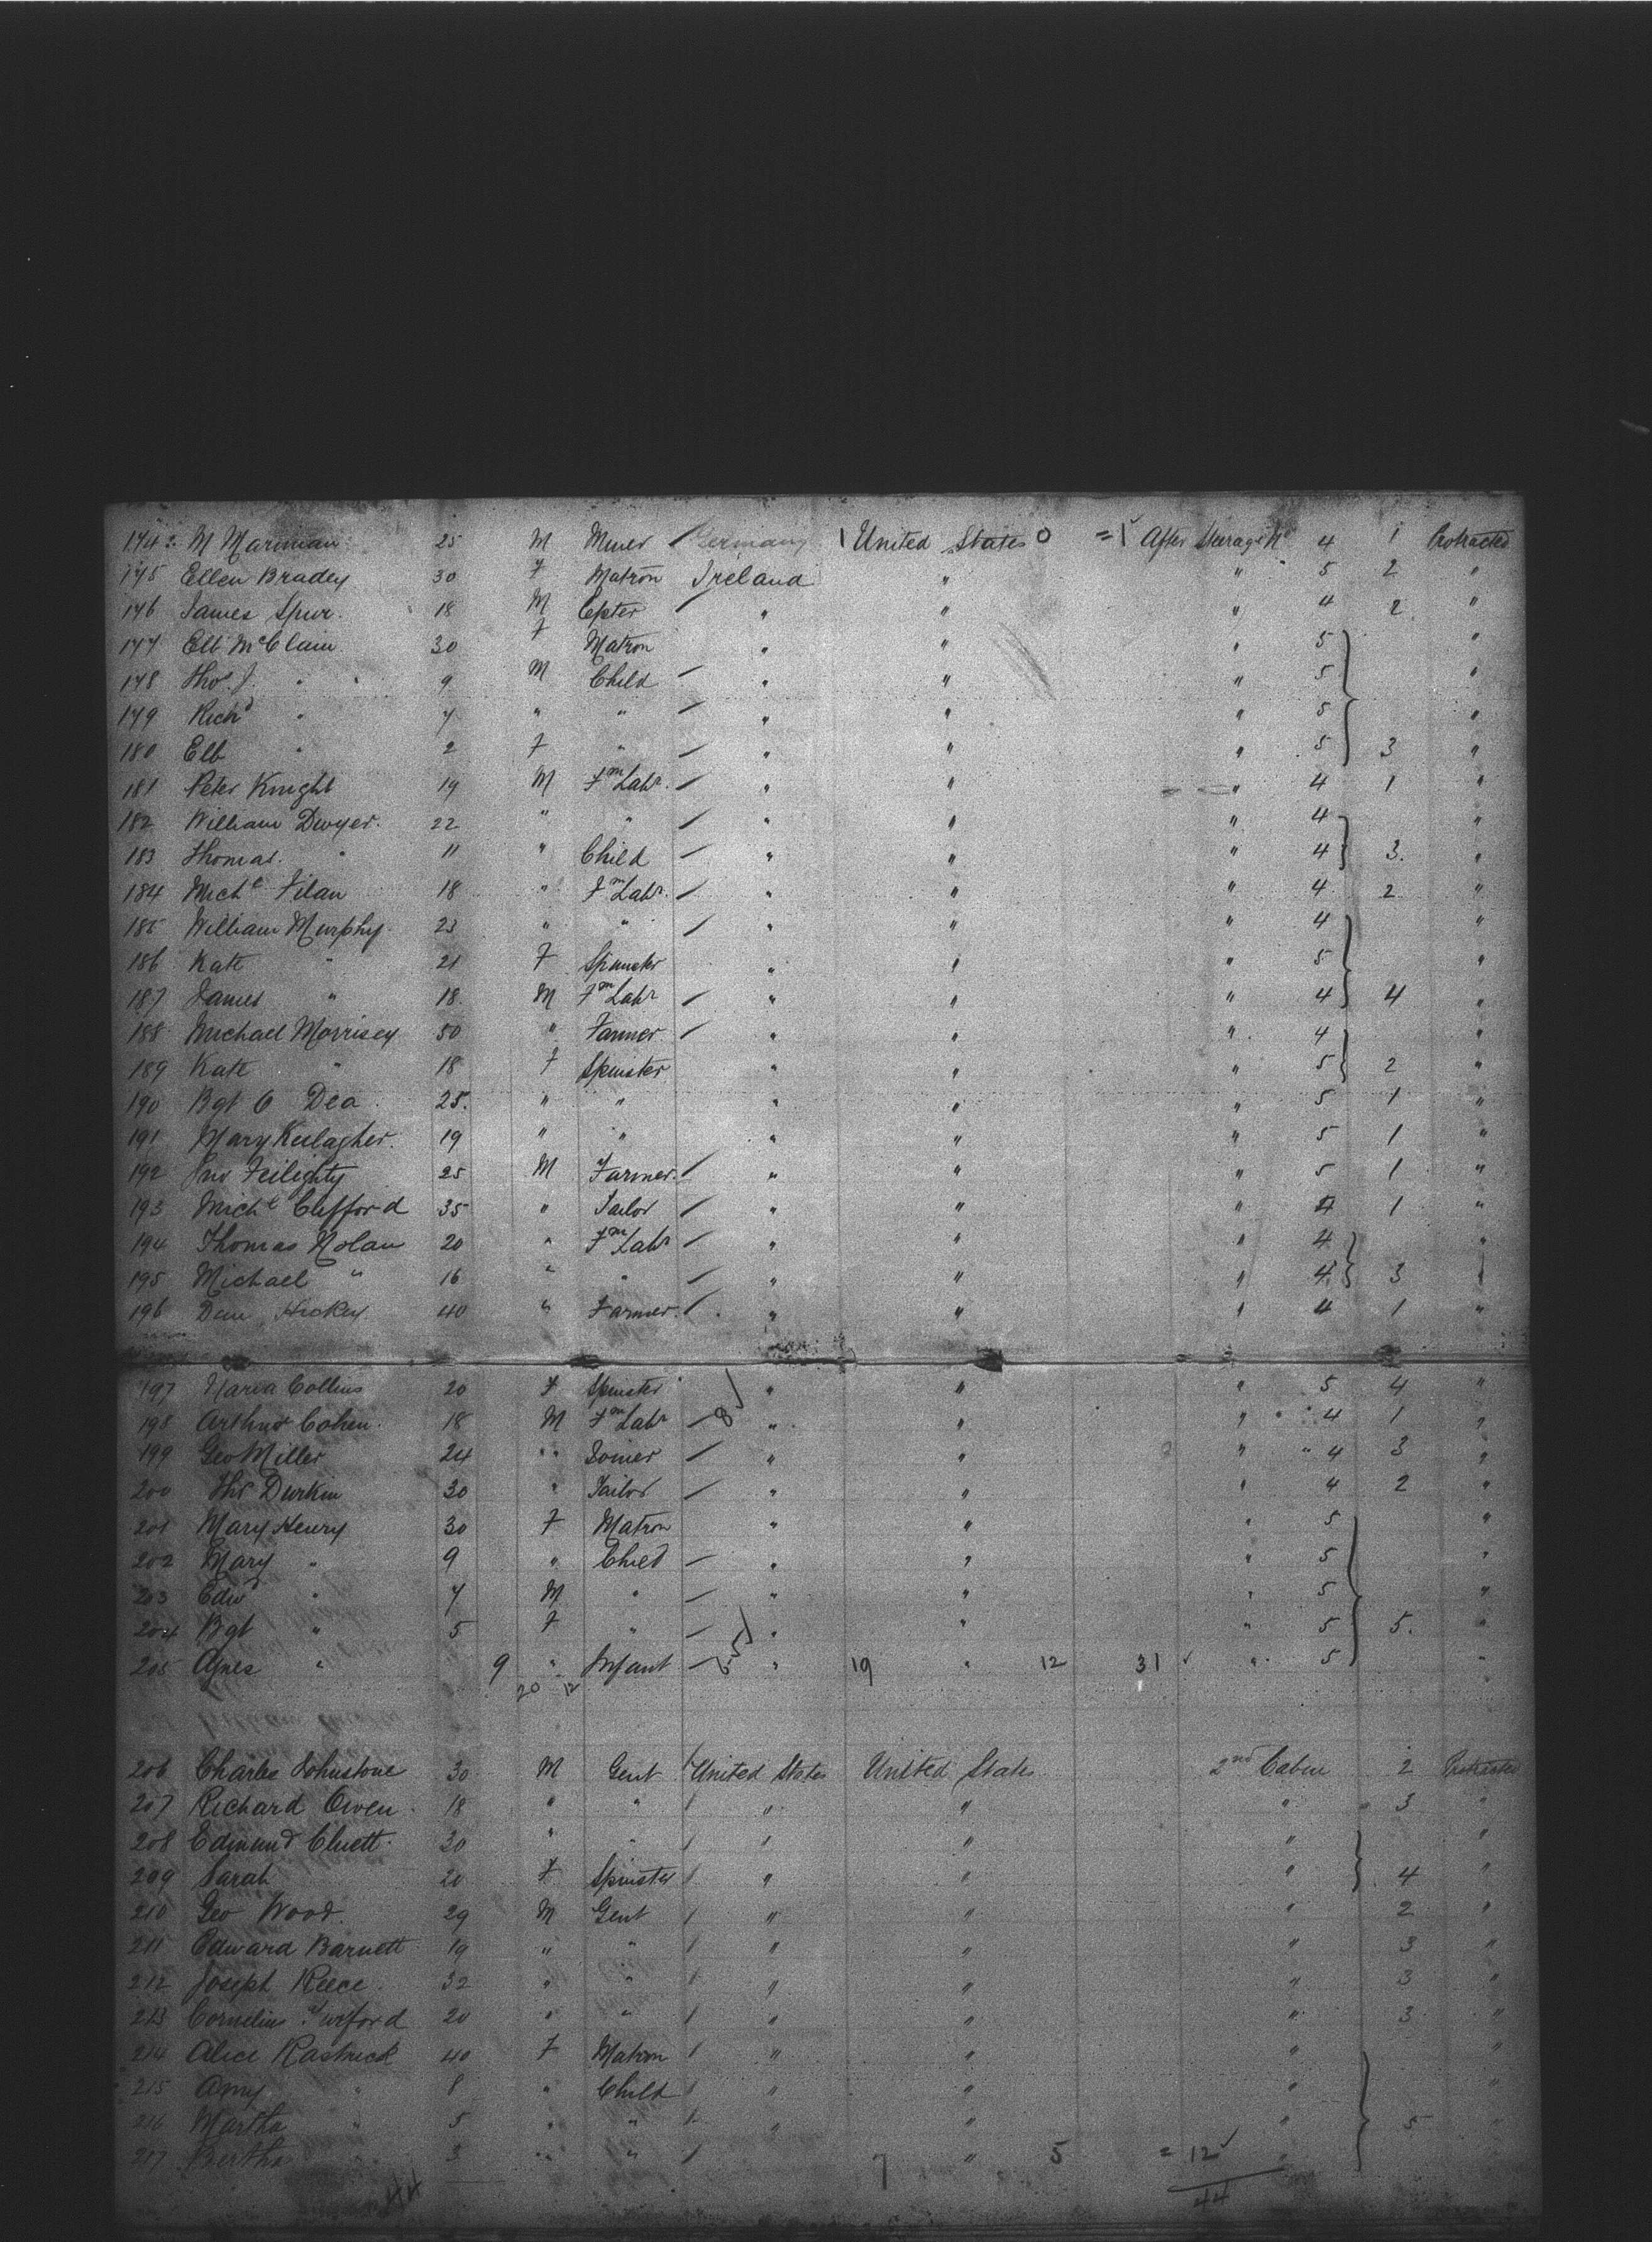 174 M Mariman 25 M Miner Germany 1 United States 0 = 1 After Steerage 4 1 Protracted
175 Ellen Bradey 30 F Matron Ireland " " 5 2 "
176 James Spur. 18 M " " " 4 2 "
177 Elb McClain 30 F Matron " " " 5 "
178 Thos J. " 9 M Child " " " 5 "
179 Richd " 7 " " " " " 5 "
180 Elb " 2 F " " " " 5 3 "
181 Peter Knight 19 M Fm Labr. " " " 4 1 "
182 William Dwyer. 22 " " " " " 4 "
183 Thomas. " 11 " Child " " " 4 3. "
184 Michl Filan 18 " Fm Labr. " " " 4 2 "
185 William Murphy 23 " " " " " 4 "
186 Kate " 21 F Spinster " " " 5 "
187 James " 18. M Fm Labr " " " 4 4 "
188 Michael Morrisey 50 " Farmer " " " 4 "
189 Kate " 18 F Spinster " " " 5 2 "
190 Bgt O Dea 25. " " " " " 5 1 "
191 Mary 19 " " " " " 5 1 "
192 Jno Feilighty 25 M Farmer. " " " 5 1 "
193 Michl Clifford 35 " Tailor " " " 4 1 "
194 Thomas Nolan 20 " Fm Labr " " " 4 "
195 Michael " 16 " " " " " 4 3 "
196 Dan Hickey. 40 " Farmer. " " " 4 1 "
197 Maria Collins 20 F Spinster " " " 5 4 "
198 Arthur Cohen. 18 M Fm Labr 8 " " " 4 1 "
199 Geo Miller 24 " Joiner " " " 4 3 "
200 Thos Durkin 30 " Tailor " " " 4 2 "
201 Mary Henry 30 F Matron " " " 5 "
202 Mary " 9 " Child " " " 5 "
203 Edwd " 7 M " " " " 5 "
204 Bgt " 5 F " " " " 5 5. "
205 Agnes " 9 " Infant " 19 " 12 31 " 5 "
20 12
206 Charles Johnstone 30 M Gent United States United States 2nd Cabin 2 Protracted
207 Richard Owen 18 " " " " " 3 "
208 Edmund Cluett. 30 " " " " " "
209 Sarah 20 F Spinster " " " 4 "
210 Geo Wood. 29 M Gent " " " 2 "
211 Edward Barnett 19 " " " " " 3 "
212 Joseph Reece. 32 " " " " " 3 "
213 Cornelius 20 " " " " " 3 "
214 Alice Rastrick 40 F Matron " " " "
215 Amy " 8 " Child " " " "
216 Martha " 5 " " " " " 5 "
217 Bertha " 3 " " 7 " 5 = 12 "
44 44